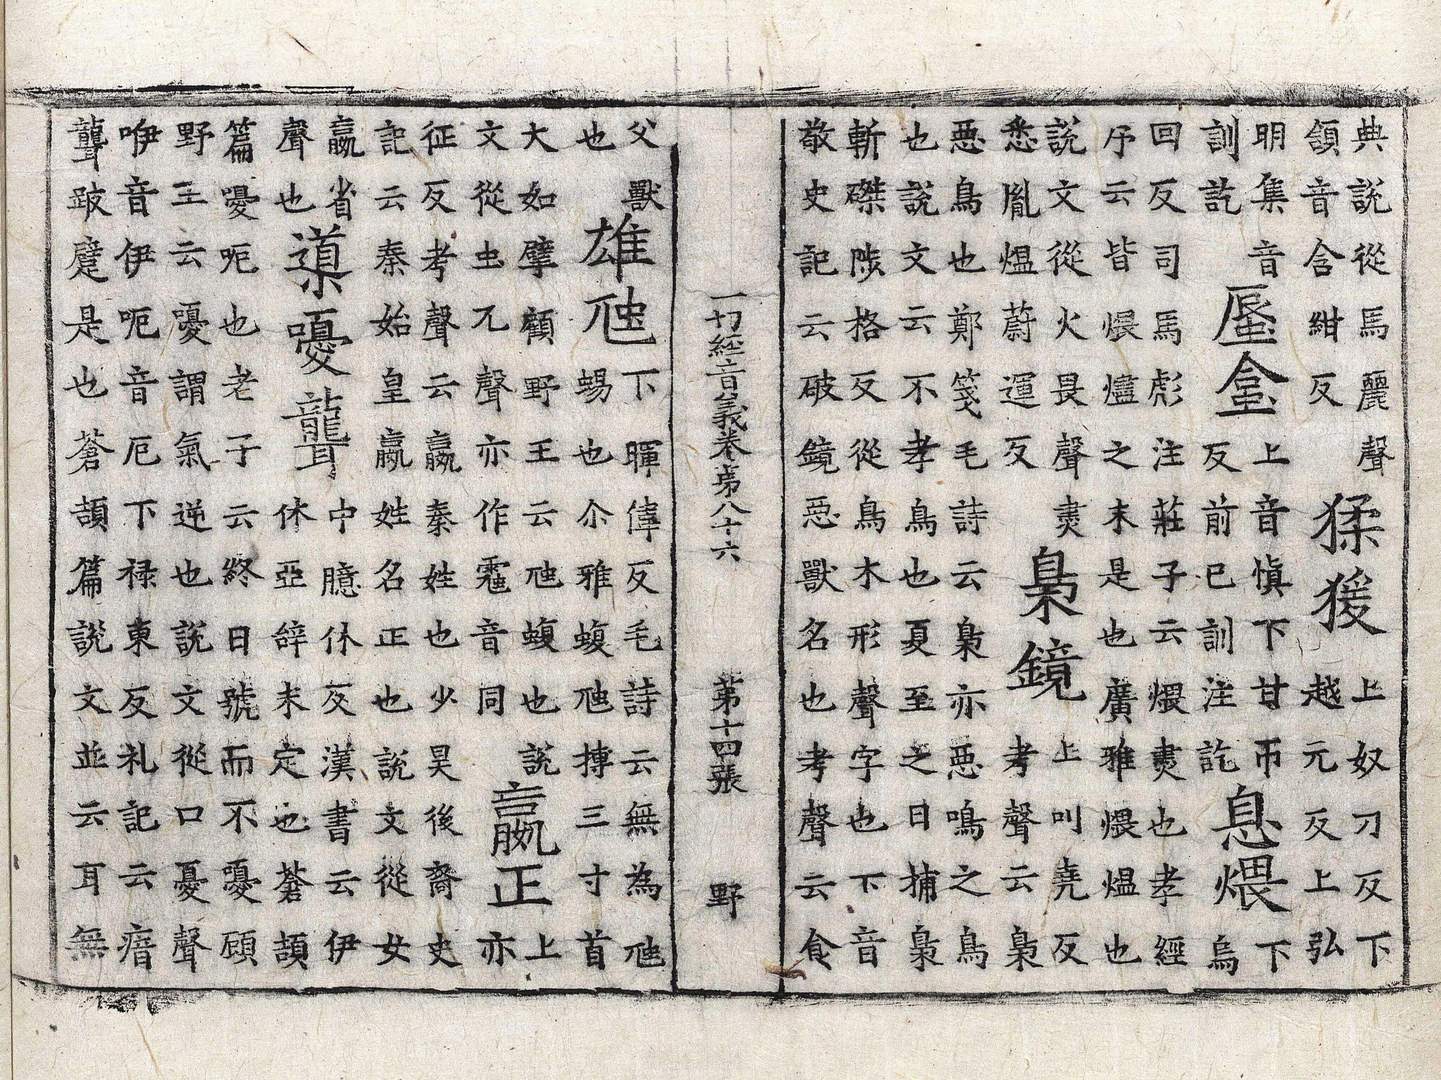 典說從馬麗聲
頷音含紺反
猱猨
上奴刀反下
越元反上弘
明集音
訓訖
蜃盒
上音慎下甘帀
反前已訓注訖
息煨
下
烏
回反司馬彪注莊子云煨㶳也孝經
序云皆煨燼之末是也廣雅煨熅也
說文從火畏聲㶳
悉胤熅蔚運反
梟鏡
上叫堯反
考聲云梟
惡鳥也鄭箋毛詩云梟亦惡鳴之鳥
也說文云不孝鳥也夏至之日捕梟
斬磔陟格反從鳥木形聲字也下音
敬史記云破鏡惡獸名也考聲云食
一切經音義卷第八十六 第十四張 野
父獸
也
雄虺
下暉偉反毛詩云無為虺
蜴也尒雅蝮虺摶三寸首
大如擘顧野王云虺蝮也說
文從虫兀聲亦作音同
嬴正
上
亦
征反考聲云嬴秦姓也少昊後裔史
記云秦始皇嬴姓名正也說文從女
嬴省
聲也
嚘聾
中臆休反漢書云伊
休亞辝未定也蒼頡
篇嚘呃也老子云終日號而不嚘顧
野王云嚘謂氣逆也說文從口憂聲
咿音伊呃音厄下祿東反礼記云瘖
聾跛躄是也蒼頡篇說文並云耳無